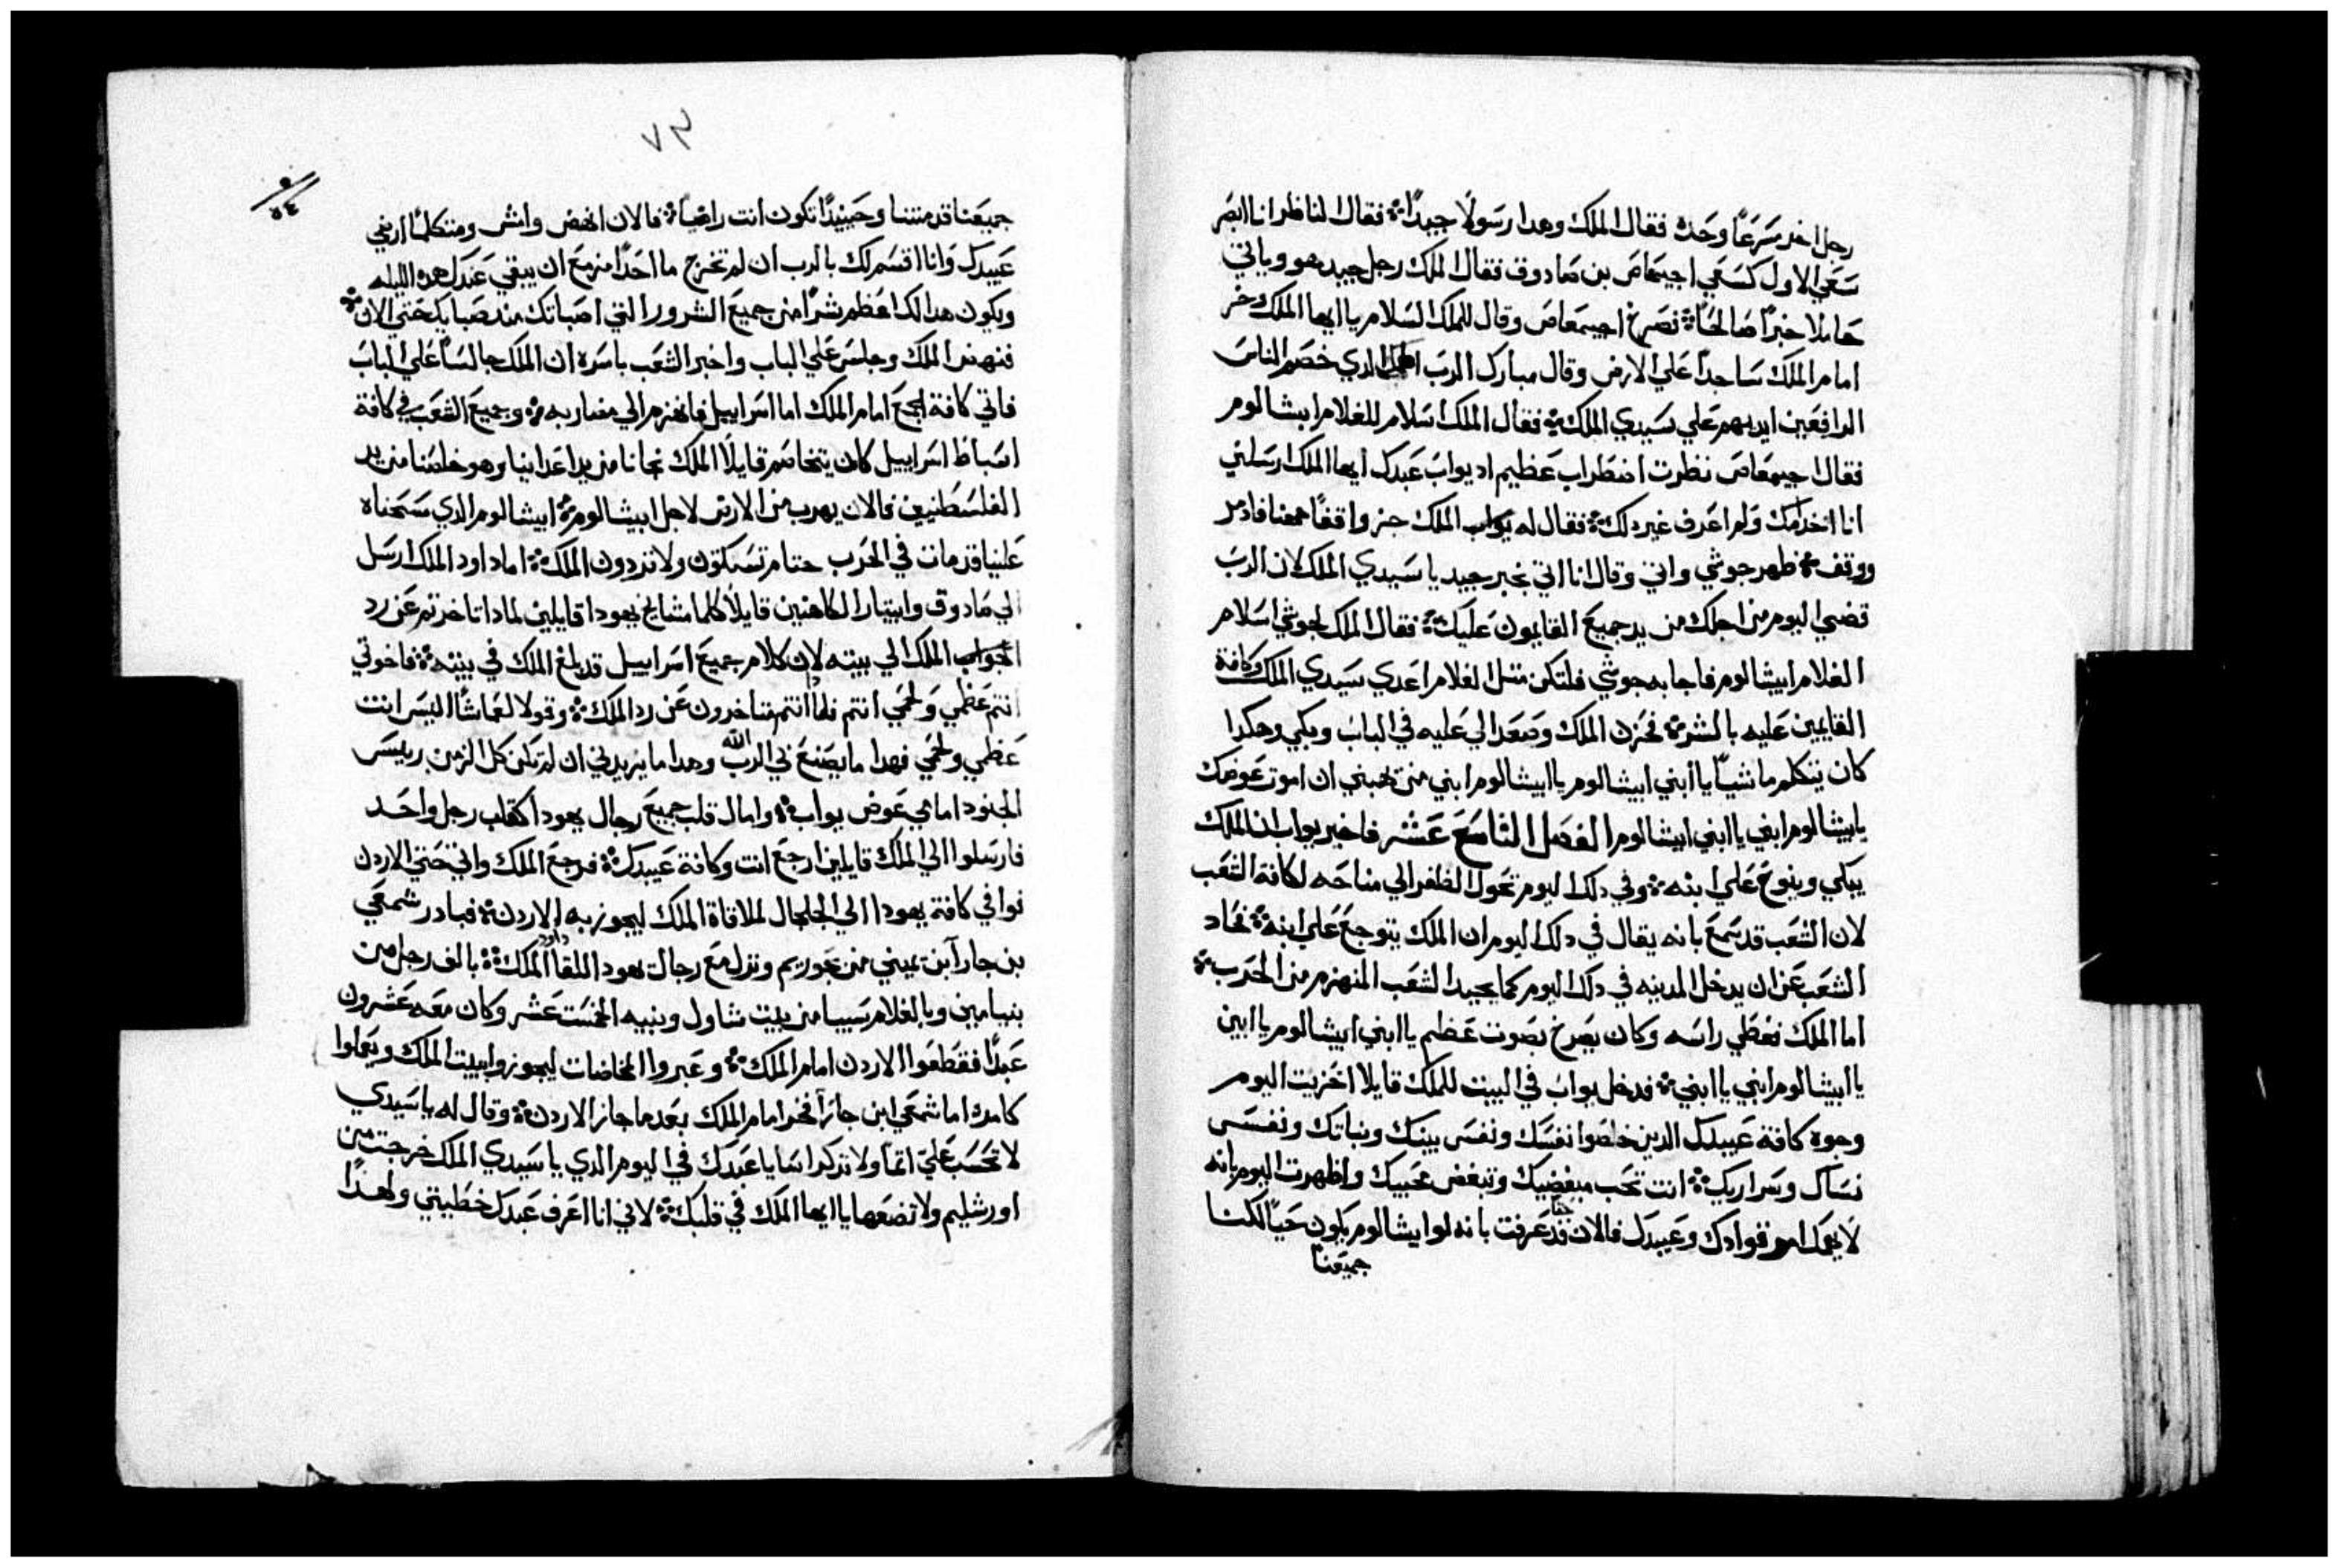 رجل اخر مسرعًا وحده فقال الملك وهدا رسولًا جيدًا فقال الناظر انا ابصر
سعي الاول كسعي اجيمعاص بن صادوق فقال الملك رجل جيد هو وياتي
حاملًا خبرًا صالحًا فصرخ اجيمعاص وقال للملك السلام يا ايها الملك وخر
امام الملك ساجدًا علي الارض وقال مبارك الرب الهك الدي خصم الناس
الرافعين ايديهم علي سيدي الملك فقال الملك اسلام للغلام ابيشالوم
فقال اجيمعاص نظرت اضطراب عظيم اد يواب عبدك ايها الملك ارسلني
انا اخدامك ولم اعرف غير دلك فقال له الملك جز واقفًا ههنا فادمر
ووقف ظهر جوشي واتي وقال انا اتي بخبر جيد يا سيدي الملك لان الرب
قضي اليوم من اجلك من يد جميع القايمون عليك فقال الملك لجوشي اسلام
الغلام ابيشالوم فاجابه جوشي فلتكن متل الغلام اعدي سيدي الملك وكافة
القايمين عليه بالشر فحزن الملك وصعد الي عليه في الباب وبكي وهكدا
كان يتكلم ماشيًا يا ابني ابيشالوم يا ابيشالوم ابني من يحبني ان اموت عوضك
يابيشالوم ابني يا ابني ابيشالوم الفصل التاسع عشر فاخبر يواب ان الملك
يبكي وينوح علي ابنه وفي دلك اليوم تحول الظفر الي مناحه لكافة الشعب
لان الشعب قد سمع بانه يقال في دلك اليوم ان الملك يتوجع علي ابنه فحاد
الشعب عن ان يدخل المدينه في دلك اليوم كما يحيد الشعب المنهزم من الحرب
اما الملك فغطي راسه وكان يصرخ بصوت عظيم يا ابني ابيشالوم يا ابين
يا ابيشالوم ابني يا ابني فدخل يواب في البيت للملك قايلا اخزيت اليوم
وجوه كافة عبيدك الدين خلصوا نفسك ونفس بينك وبناتك ونفس
نساك وسراريك انت تحب مبغضيك وتبغض محبيك واظهرت اليوم بانه
لا يهمك امر قوادك وعبيدك فالان حقًا قد عرفت بانه لو ابيشالوم يكون حيًا لكنا
جميعنا
٧٣
جميعنا قد متنا وحينيدًا تكون انت راضيًا فالان انهض وامش ومتكلمًا ارضي
عبيدك وانا اقسم لك بالرب ان لم تخرج ما احدًا مزمع ان يبقي عندك هده الليله
ويكون هدا لك اعظم شرًا من جميع الشرور التي اصباتك مند صبايك حتي الان
فنهض الملك وجلس علي الباب واخبر الشعب باسره ان الملك جالسًا علي الباب
فاتي كافة الجمع امام الملك اما اسراييل فانهزم الي مضاربه وجميع الشعب في كافة
اسباط اسراييل كان يتخاصم قايلًا الملك نجانا من يد اعداينا وهو خلصنا من يد
الفلسطنيين فالان يهرب من الارض لاجل ابيشالوم ابيشالوم الدي مسحناه
علينا قد مات في الحرب حتام تسكتون ولا تردون الملك اما داود الملك ارسل
الي صادوق وابيتار الكاهنين قايلًا كلما مشايخ يهودا قايلين لمادا تاخرتم عن رد
الملك الي بيته لان كلام جميع اسراييل قد بلغ الملك في بيته فاخوتي
انتم عظمي ولحمي انتم فلمادا انتم تتاخرون عن رد الملك وقولا لعماشا اليس انت
عظمي ولحمي فهدا ما يصنع بي الرب الله وهدا ما يزيدني ان لم تكن كل الزمن رييس
الجنود امامي عوض يواب وامال قلب جميع رجال يهودا كقلب رجل واحد
فارسلوا الي الملك قايلين ارجع انت وكافة عبيدك فرجع الملك واتي حتي الاردن
فوافي كافة يهودا الي الجلجال لملاقاة الملك ليجوز به الاردن فبادر شمعي
بن جارا بن يميني من بحوريم ونزل مع رجال يهودا للقا داود الملك بالف رجل من
بنيامين وبالغلام سيبا من بيت شاول وبنيه الخمست عشر وكان معه عشرون
عبدًا فقطعوا الاردن امام الملك وعبروا المخاضات ليجوزوا بيت الملك ويعملوا
كامره اما شمعي ابن جارا فخر امام الملك بعد ما جاز الاردن وقال له يا سيدي
لا تحسب علي اتمًا ولا تدكر اسايا عبدك في اليوم الدي يا سيدي الملك خرجت من
اورشليم ولا تضعها يا ايها الملك في قلبك لاني انا اعرف عبدك خطيتي ولهدا